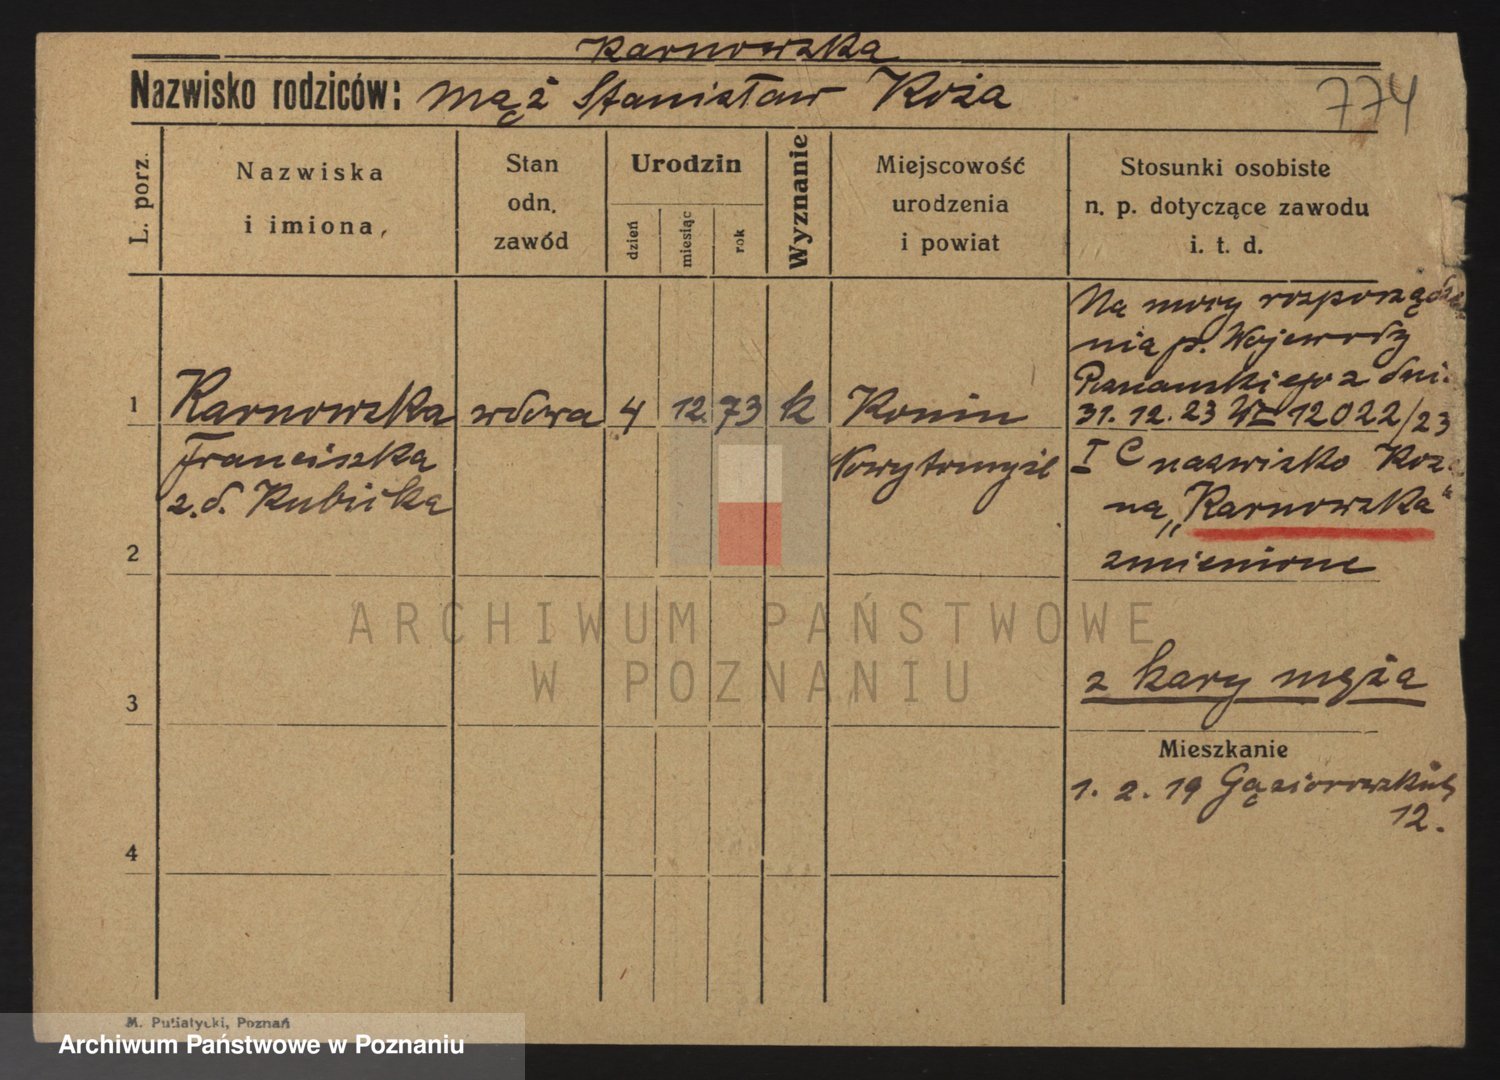 Karnowska
Nazwisko rodziców: mąż Stanisław Koza
774
L. porz.
Nazwiska
i imiona,
Stan
odn.
zawód
Urodzin
dzień
miesiąc
rok
Wyznanie
Miejscowość
urodzenia
i powiat
Stosunki osobiste
n. p. dotyczące zawodu
i. t. d.
1
Karnowska
Franciszka
z. d. Kubicka
wdowa
4
12.
73
k
Konin
Nowytomyśl
Na mocy rozporządze
nia p. Wojewody
Poznańskiego z dni.
31. 12. 23 12022/23
I C nazwisko Koz.
na „Karnowska"
zmienione
2
z karty męża
3
Mieszkanie
1. 2. 19 Gąsiorowskich
12.
4
ARCHIWUM PAŃSTWOWE
W POZNANIU
M. Putiatycki, Poznań
Archiwum Państwowe w Poznaniu